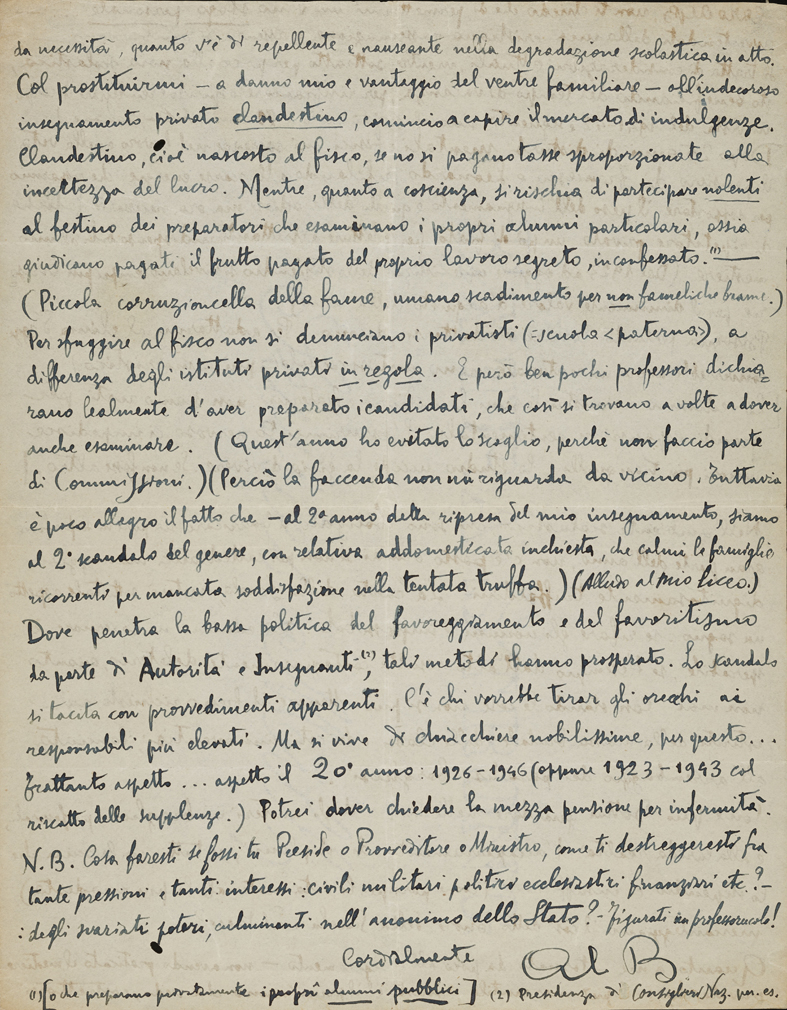 da necessità, quanto v'è di repellente e nauseante nella degradazione scolastica in atto.
Col prostituirmi – a danno mio e vantaggio del ventre familiare – all'indecoroso
insegnamento privato clandestino, comincio a capire il mercato di indulgenze.
Clandestino, cioè nascosto al fisco, se no si pagano tasse sproporzionate alla
incertezza del lucro. Mentre, quanto a coscienza, si rischia di partecipare nolenti
al festino dei preparatori che esaminano i propri alunni particolari, ossia
giudicano pagati il frutto pagato del proprio lavoro segreto, inconfessato.(1)
(Piccola corruzioncella della fame, umano scadimento per non fameliche brame.)
Per sfuggire al fisco non si denunciano i privatisti (=scuola <paterna>), a
differenza degli istituti privati in regola. E però ben pochi professori dichia=
rano lealmente d'aver preparato i candidati, che così si trovano a volte a dover
anche esaminare. (Quest'anno ho evitato lo scoglio, perchè non faccio parte
di Commissioni.) (Perciò la faccenda non mi riguarda da vicino. Tuttavia
è poco allegro il fatto che – al 2° anno della ripresa del mio insegnamento, siamo
al 2° scandalo del genere, con relativa addomesticata inchiesta, che calmi le famiglie
ricorrenti per mancata soddisfazione nella tentata truffa.) (Alludo al mio Liceo.)
Dove penetra la bassa politica del favoreggiamento e del favoritismo
da parte di Autorità e Insegnanti(2), tali metodi hanno prosperato. Lo scandalo
si tacita con provvedimenti apparenti. C'è chi vorrebbe tirar gli orecchi ai
responsabili più elevati. Ma si vive di chiacchiere nobilissime, per questo...
Frattanto aspetto... aspetto il 20° anno: 1926-1946 (oppure 1923-1943 col
riscatto delle supplenze.) Potrei dover chiedere la mezza pensione per infermità.
N.B. Cosa faresti se fossi tu Preside o Provveditore o Ministro, come ti destreggeresti fra
tante pressioni e tanti interessi: civili militari politici ecclesiastici finanziari etc.? –
: degli svariati poteri, culminanti nell'anonimo dello Stato? – Figurati un professorucolo!
Cordialmente Al B
(1) [o che preparano privatamente i propri alunni pubblici] (2) Presidenza di Consiglieri Naz. per es.